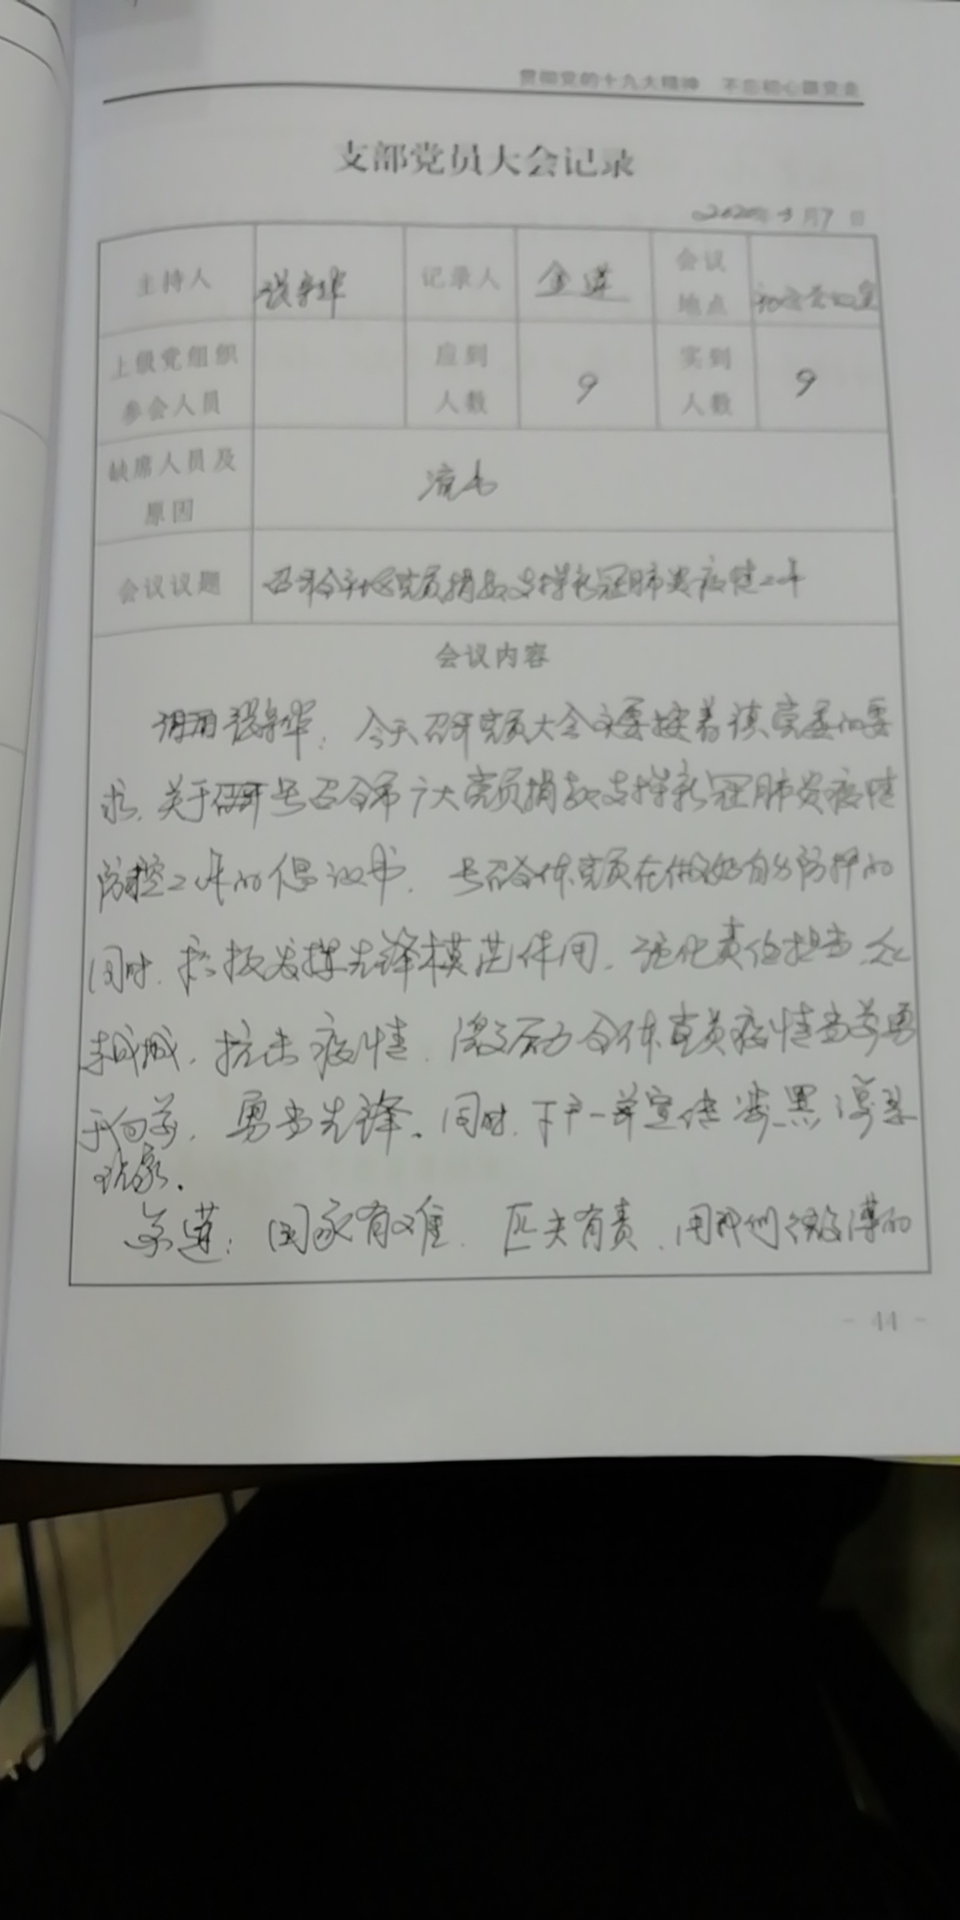 贯彻党的十九大精神 不忘初心跟党走
支部党员大会记录
2020年3月7日
主持人 记录人 会议地点
上级党组织参会人员 应到人数 9 实到人数 9
缺席人员及原因
会议议题 党员捐款支持新冠肺炎疫情工作
会议内容
今天召开党员大会主要按着镇党委的要
求,关于召开号召全市广大党员捐款支持新冠肺炎疫情
防控工作的倡议书,号召全体党员在做好自身防护的
同时,积极发挥先锋模范作用,强化责任担当,众志
成城,抗击疫情,激励全体党员疫情当前勇
于向前,勇当先锋。同时,
国家有难,匹夫有责,用我们微薄的
- 44 -